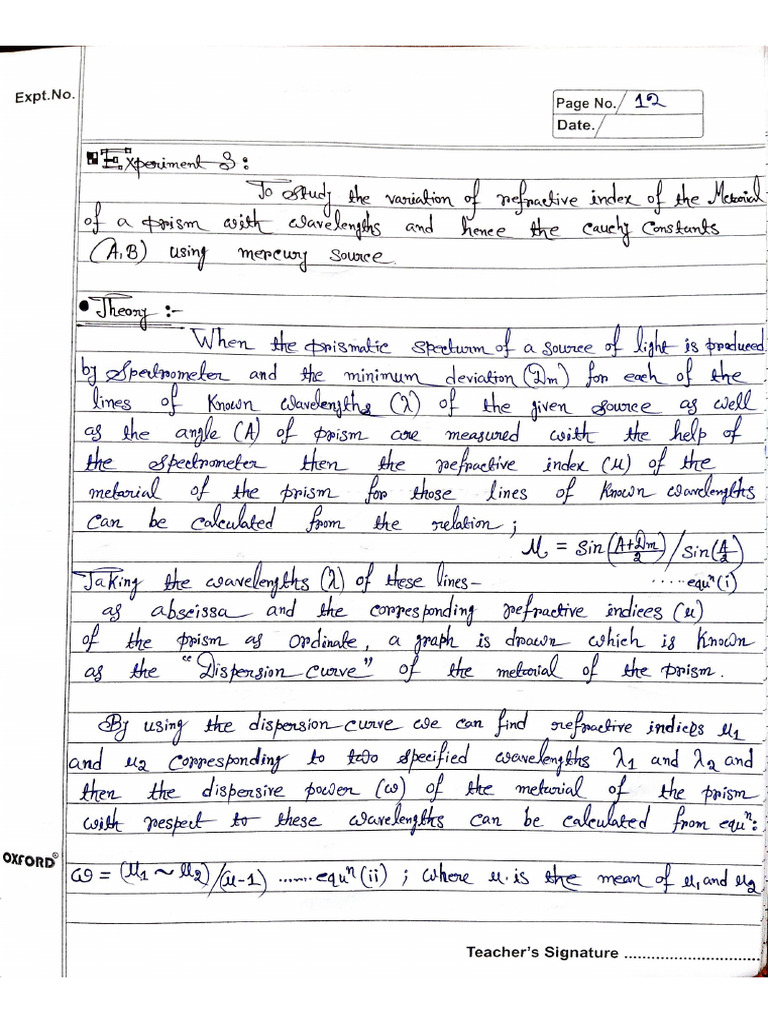 Expt.No.
Page No. 12
Date.
Experiment 3:
To study the variation of refractive index of the Meterial
of a prism with wavelengths and hence the cauchy constants
(A,B) using mercury source.
• Theory :-
When the prismatic specturm of a source of light is produced
by spectrometer and the minimum deviation (Dm) for each of the
lines of known wavelengths (λ) of the given source as well
as the angle (A) of prism are measured with the help of
the spectrometer then the refractive index (μ) of the
meterial of the prism for those lines of known wavelengths
can be calculated from the relation;
μ = sin(A+Dm/2) / sin(A/2)
.....equⁿ(i)
Taking the wavelengths (λ) of these lines-
as abscissa and the corresponding refractive indices (μ)
of the prism as ordinate, a graph is drawn which is known
as the "Dispersion curve" of the meterial of the prism.
By using the dispersion curve we can find refractive indices μ1
and μ2 corresponding to two specified wavelengths λ1 and λ2 and
then the dispersive power (ω) of the meterial of the prism
with respect to these wavelengths can be calculated from equⁿ:
OXFORD®
ω = (μ1 ~ μ2)/(μ-1) ......equⁿ(ii) ; where μ is the mean of μ1 and μ2
Teacher's Signature ..............................